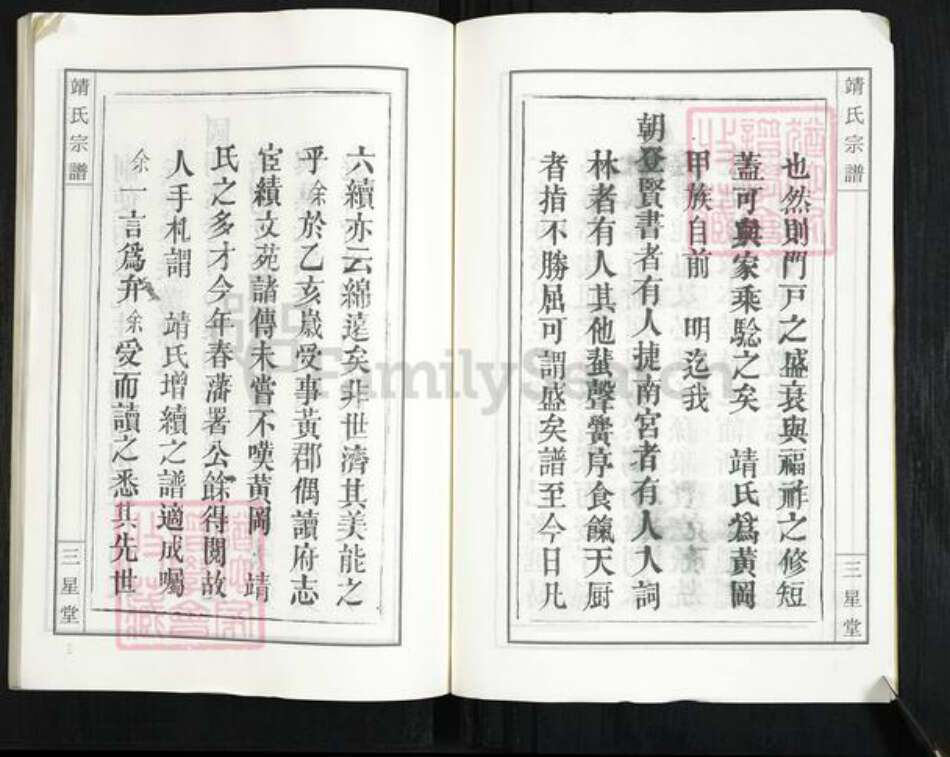 靖氏宗譜
三星堂
也然則門戸之盛衰與福祚之修短
蓋可與家乘騐之矣 靖氏爲黃岡
甲族自前 明迄我
朝登賢書者有人捷南宮者有人入詞
林者有人其他蜚聲黌序食餼天厨
者指不勝屈可謂盛矣譜至今日凡
六續亦云綿遠矣非世濟其美能之
乎余於乙亥歲受事黃郡偶讀府志
宦績文苑諸傳未嘗不嘆黃岡 靖
氏之多才今年春藩署公餘得閱故
人手札謂 靖氏增續之譜適成囑
余一言爲弁余受而讀之悉其先世
靖氏宗譜
三星堂
FamilySearch